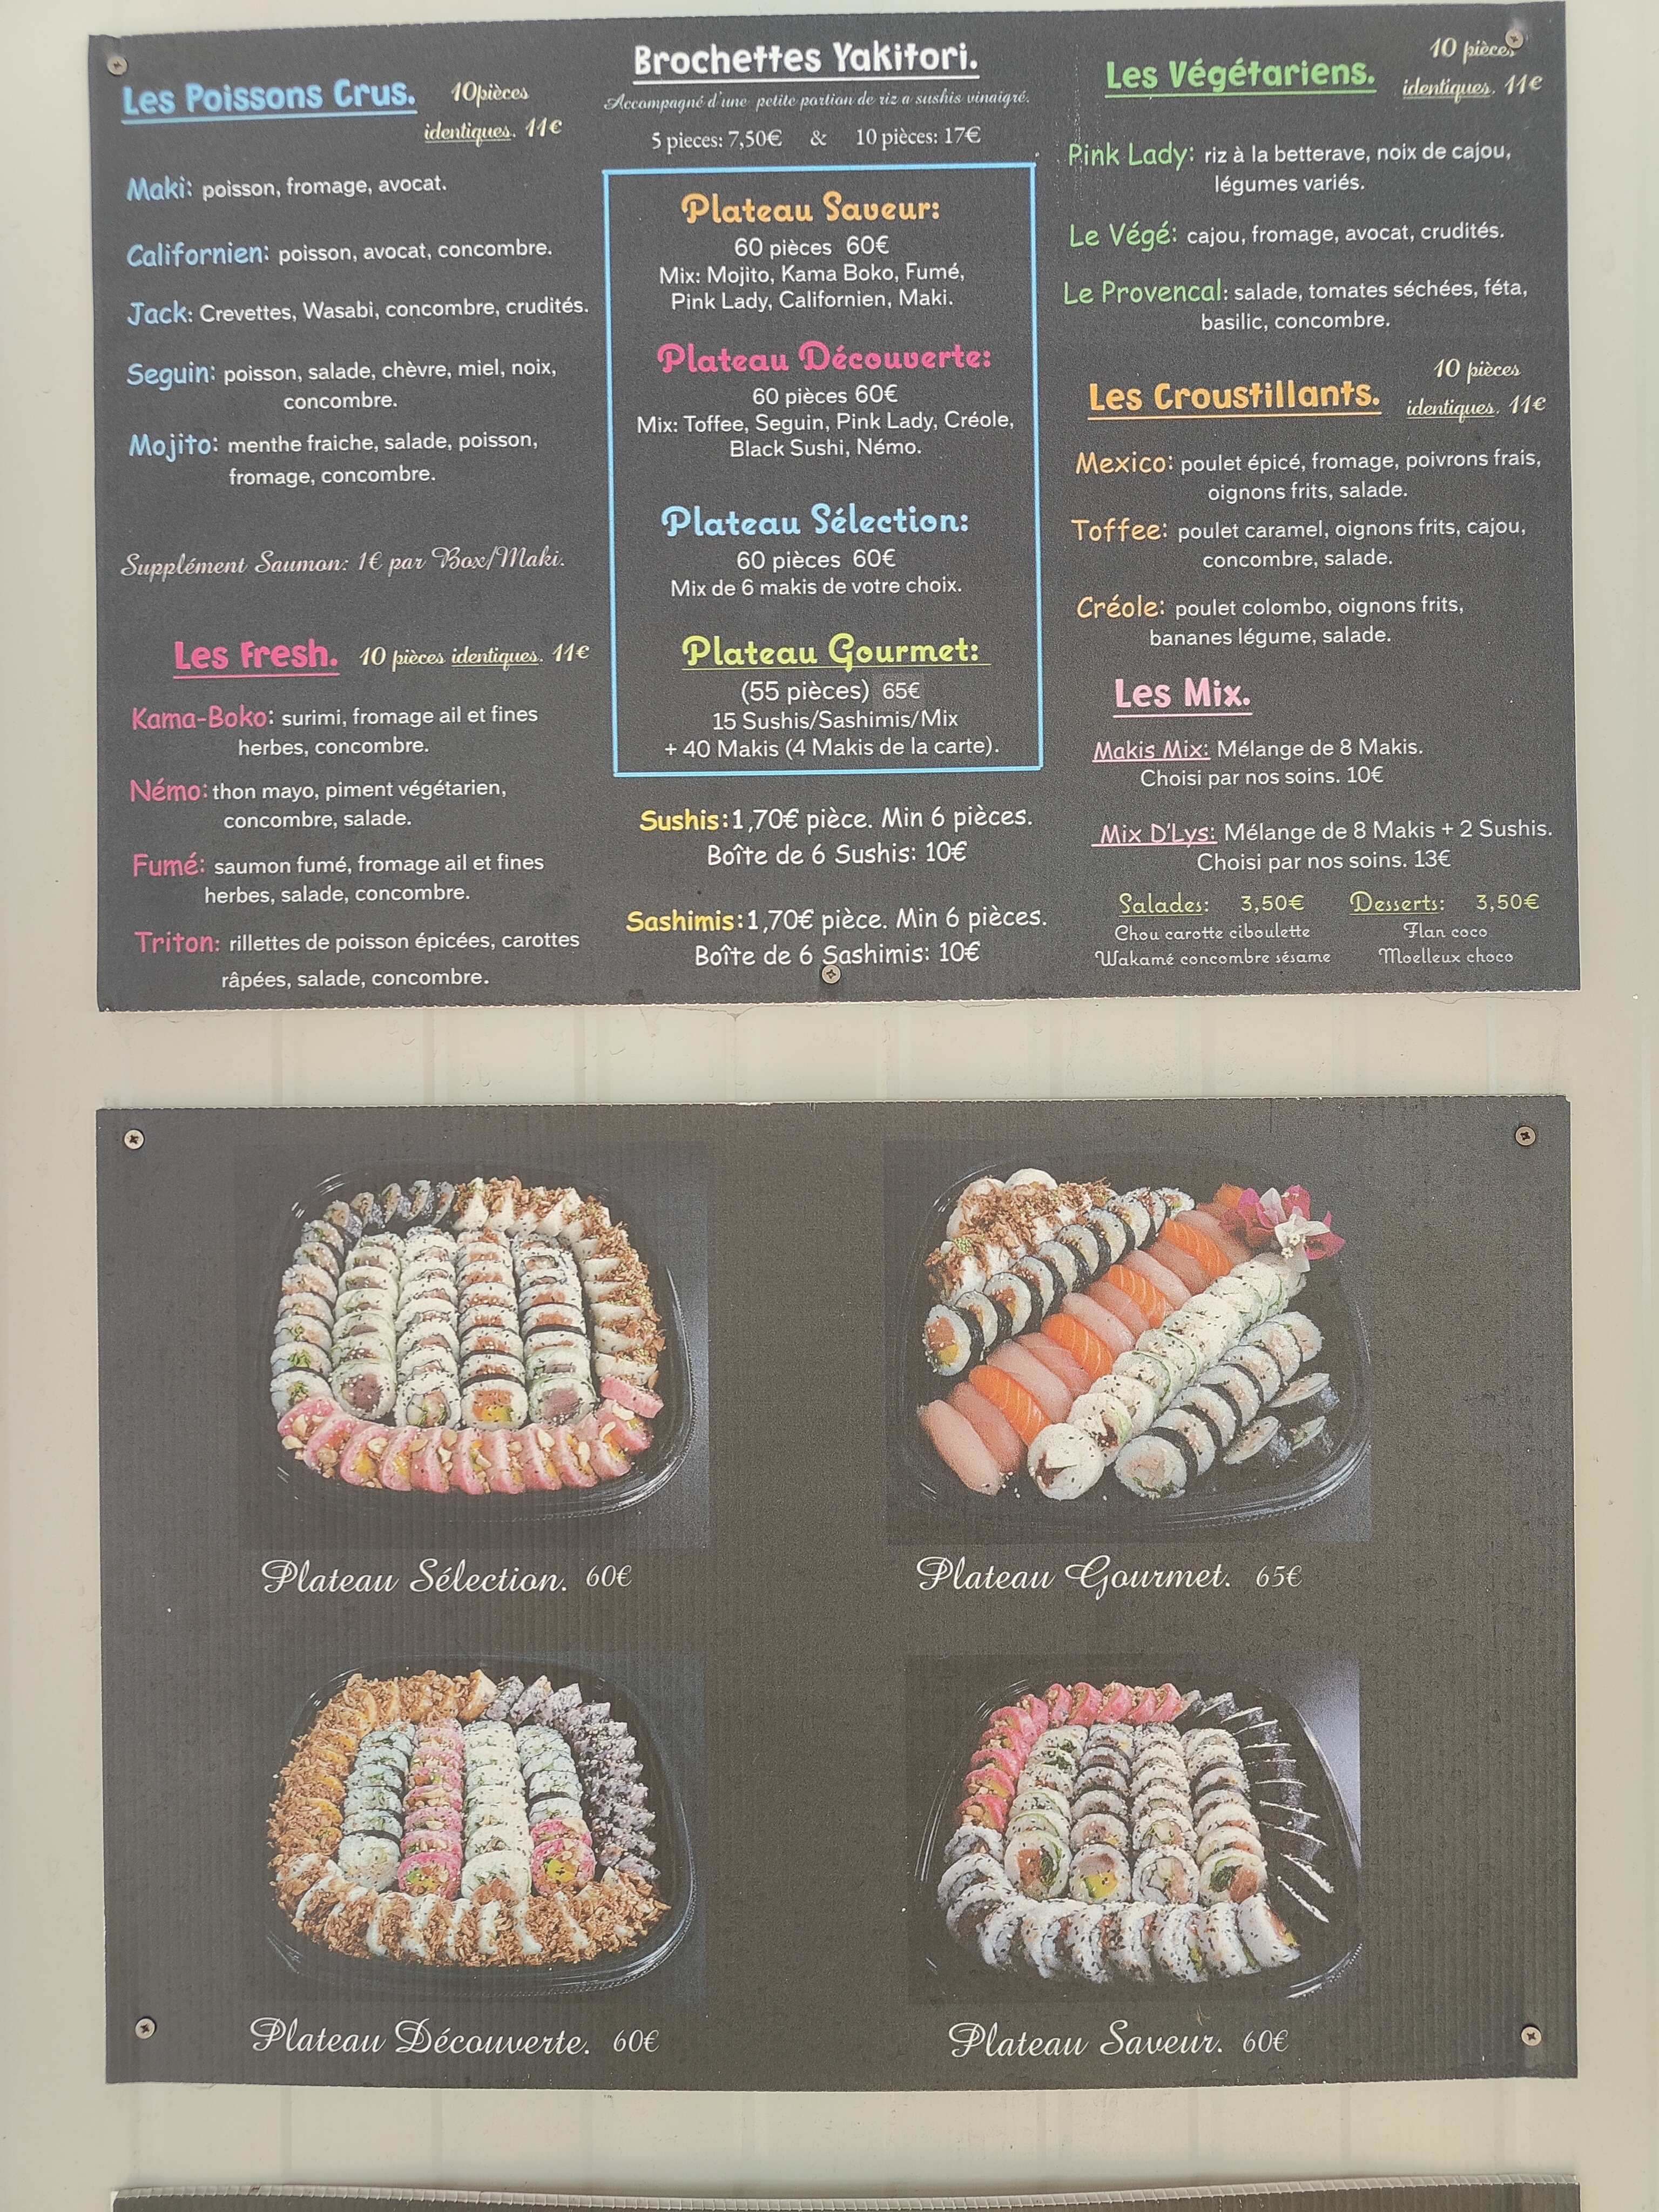 Les Poissons Crus.
10pièces
identiques. 11€
Maki: poisson, fromage, avocat.
Californien: poisson, avocat, concombre.
Jack: Crevettes, Wasabi, concombre, crudités.
Seguin: poisson, salade, chèvre, miel, noix,
concombre.
Mojito: menthe fraiche, salade, poisson,
fromage, concombre.
Supplément Saumon: 1€ par Box/Maki.
Les Fresh. 10 pièces identiques. 11€
Kama-Boko: surimi, fromage ail et fines
herbes, concombre.
Némo: thon mayo, piment végétarien,
concombre, salade.
Fumé: saumon fumé, fromage ail et fines
herbes, salade, concombre.
Triton: rillettes de poisson épicées, carottes
râpées, salade, concombre.
Brochettes Yakitori.
Accompagné d'une petite portion de riz a sushis vinaigré.
5 pieces: 7,50€ & 10 pièces: 17€
Plateau Saveur:
60 pièces 60€
Mix: Mojito, Kama Boko, Fumé,
Pink Lady, Californien, Maki.
Plateau Découverte:
60 pièces 60€
Mix: Toffee, Seguin, Pink Lady, Créole,
Black Sushi, Némo.
Plateau Sélection:
60 pièces 60€
Mix de 6 makis de votre choix.
Plateau Gourmet:
(55 pièces) 65€
15 Sushis/Sashimis/Mix
+ 40 Makis (4 Makis de la carte).
Sushis:1,70€ pièce. Min 6 pièces.
Boîte de 6 Sushis: 10€
Sashimis:1,70€ pièce. Min 6 pièces.
Boîte de 6 Sashimis: 10€
Les Végétariens.
10 pièces
identiques. 11€
Pink Lady: riz à la betterave, noix de cajou,
légumes variés.
Le Végé: cajou, fromage, avocat, crudités.
Le Provencal: salade, tomates séchées, féta,
basilic, concombre.
Les Croustillants.
10 pièces
identiques. 11€
Mexico: poulet épicé, fromage, poivrons frais,
oignons frits, salade.
Toffee: poulet caramel, oignons frits, cajou,
concombre, salade.
Créole: poulet colombo, oignons frits,
bananes légume, salade.
Les Mix.
Makis Mix: Mélange de 8 Makis.
Choisi par nos soins. 10€
Mix D'Lys: Mélange de 8 Makis + 2 Sushis.
Choisi par nos soins. 13€
Salades: 3,50€
Chou carotte ciboulette
Wakamé concombre sésame
Desserts: 3,50€
Flan coco
Moelleux choco
Plateau Sélection. 60€
Plateau Gourmet. 65€
Plateau Découverte. 60€
Plateau Saveur. 60€